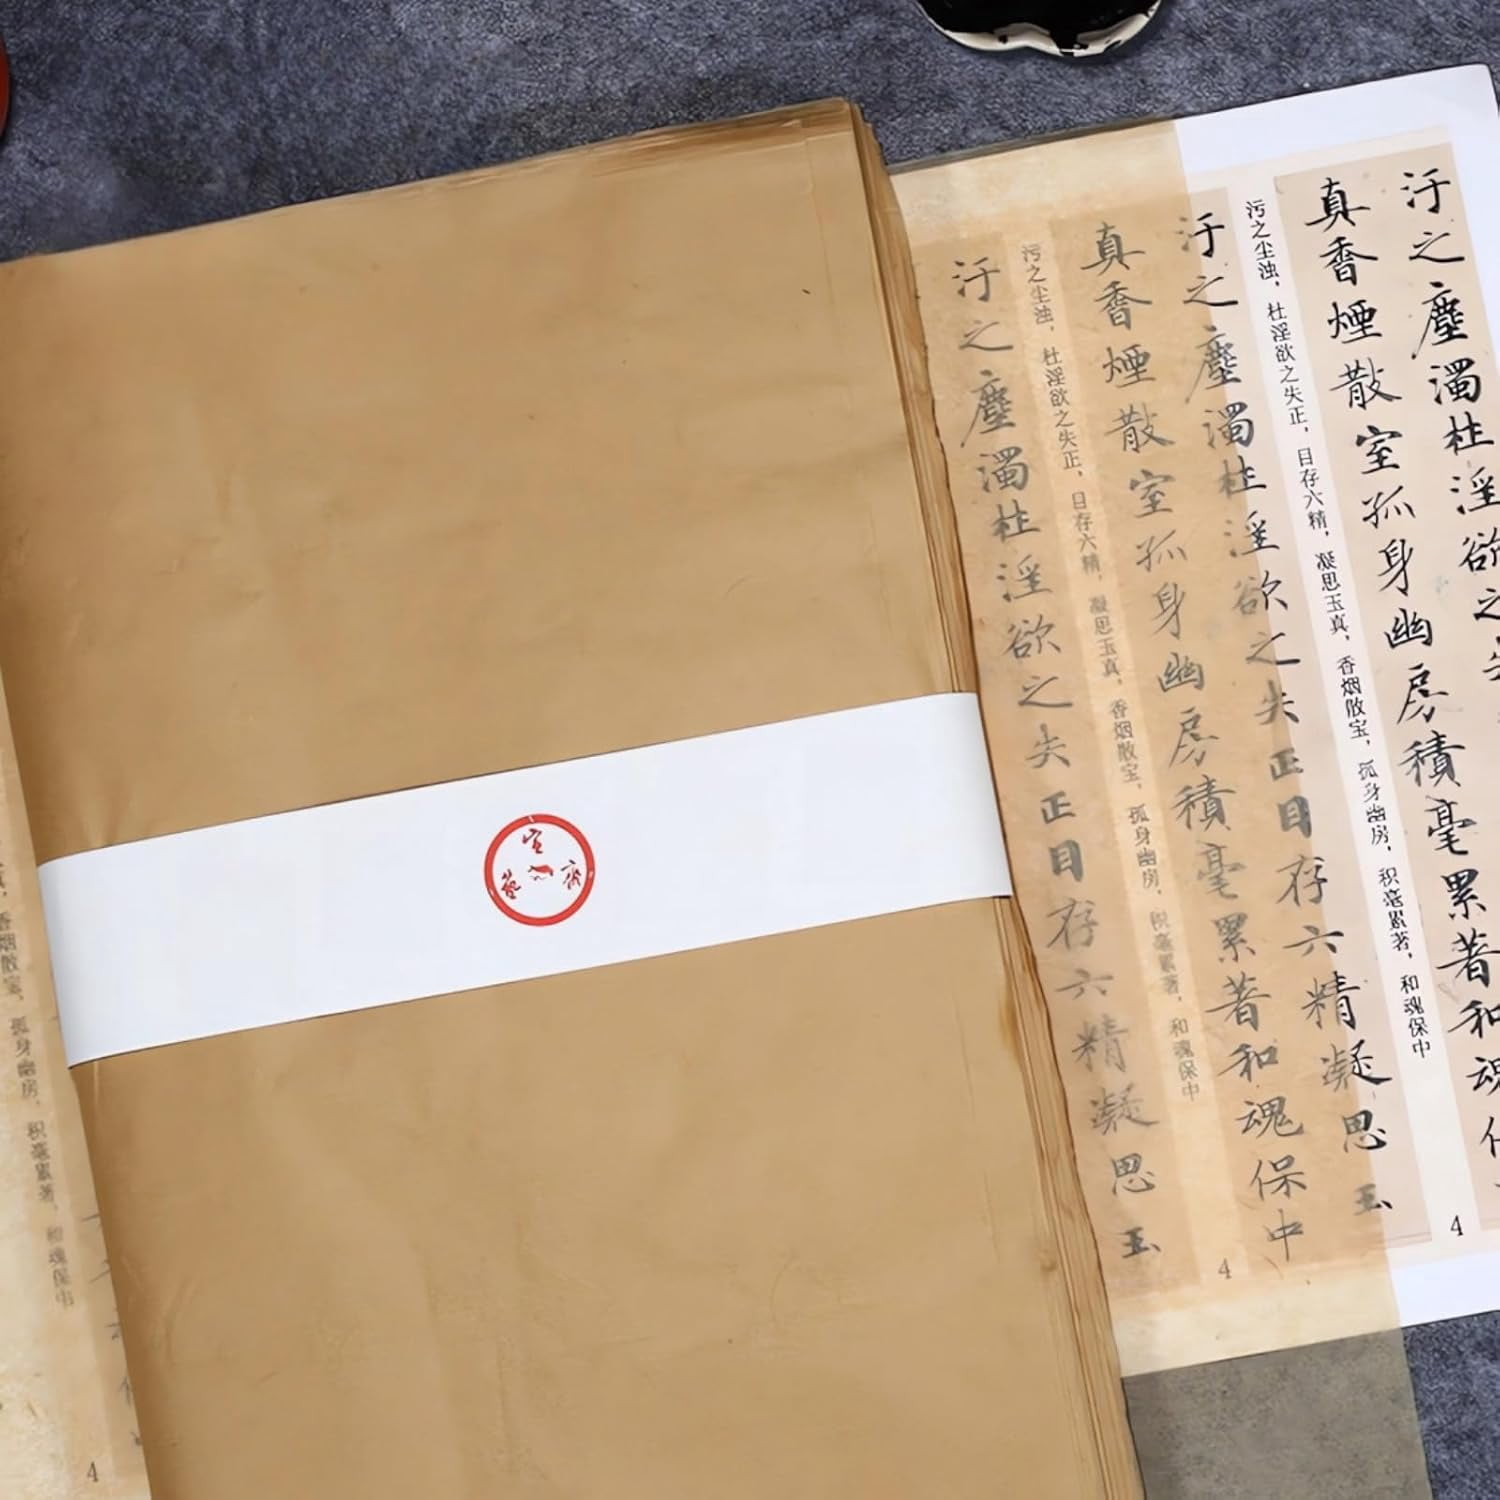 汙之塵濁杜淫欲之失
真香煙散室孤身幽房積毫累著和魂保
4
污之尘浊，杜淫欲之失正，目存六精，凝思玉真，香烟散室，孤身幽房，积毫累著，和魂保中
汙之塵濁杜淫欲之失正目存六精凝思玉
真香煙散室孤身幽房積毫累著和魂保中
4
污之尘浊，杜淫欲之失正，目存六精，凝思玉真，香烟散室，孤身幽房，积毫累著，和魂保中
汙之塵濁杜淫欲之失正目存六精凝思玉
宣
香烟散室，孤身幽房，积毫累著，和魂保中
4